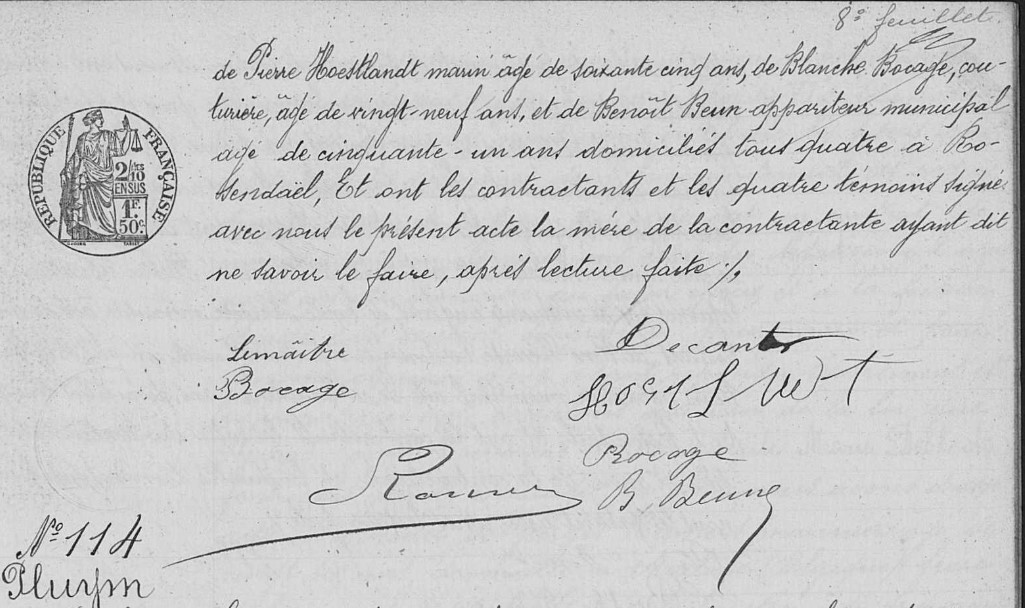 8e feuillet.
de Pierre Hoestlandt marin âgé de soixante cinq ans, de Blanche Bocage, cou-
turière, âgé de vingt-neuf ans, et de Benoît Beun appariteur municipal
agé de cinquante-un ans domiciliés tous quatre à Ro-
sendaël, Et ont les contractants et les quatre témoins signé
avec nous le présent acte la mère de la contractante ayant dit
ne savoir le faire, après lecture faite ./.
RÉPUBLIQUE FRANÇAISE
2/10
EN SUS
1F.
50c.
Lemaître
Decanter
Bocage
Bocage
B Beune
No 114
Pluym